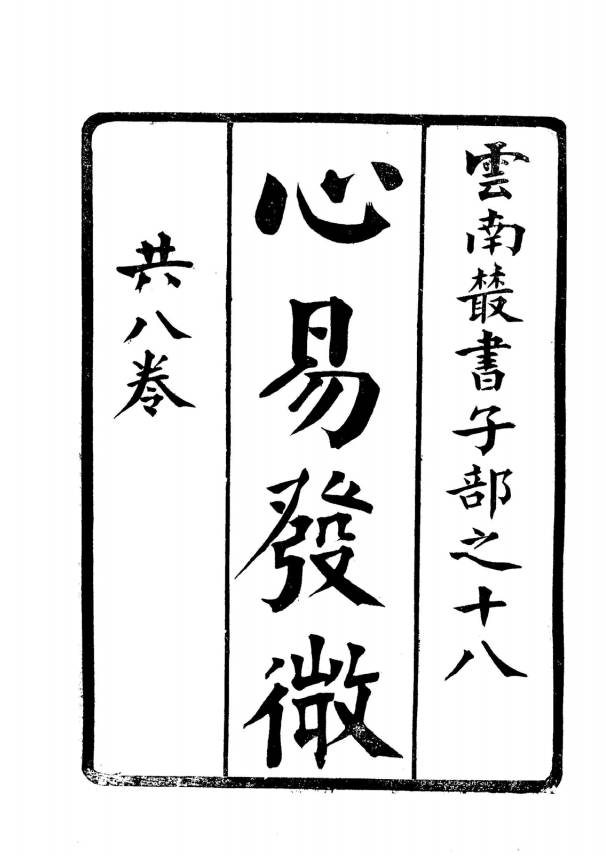 雲南叢書子部之十八
心易發微
共八卷